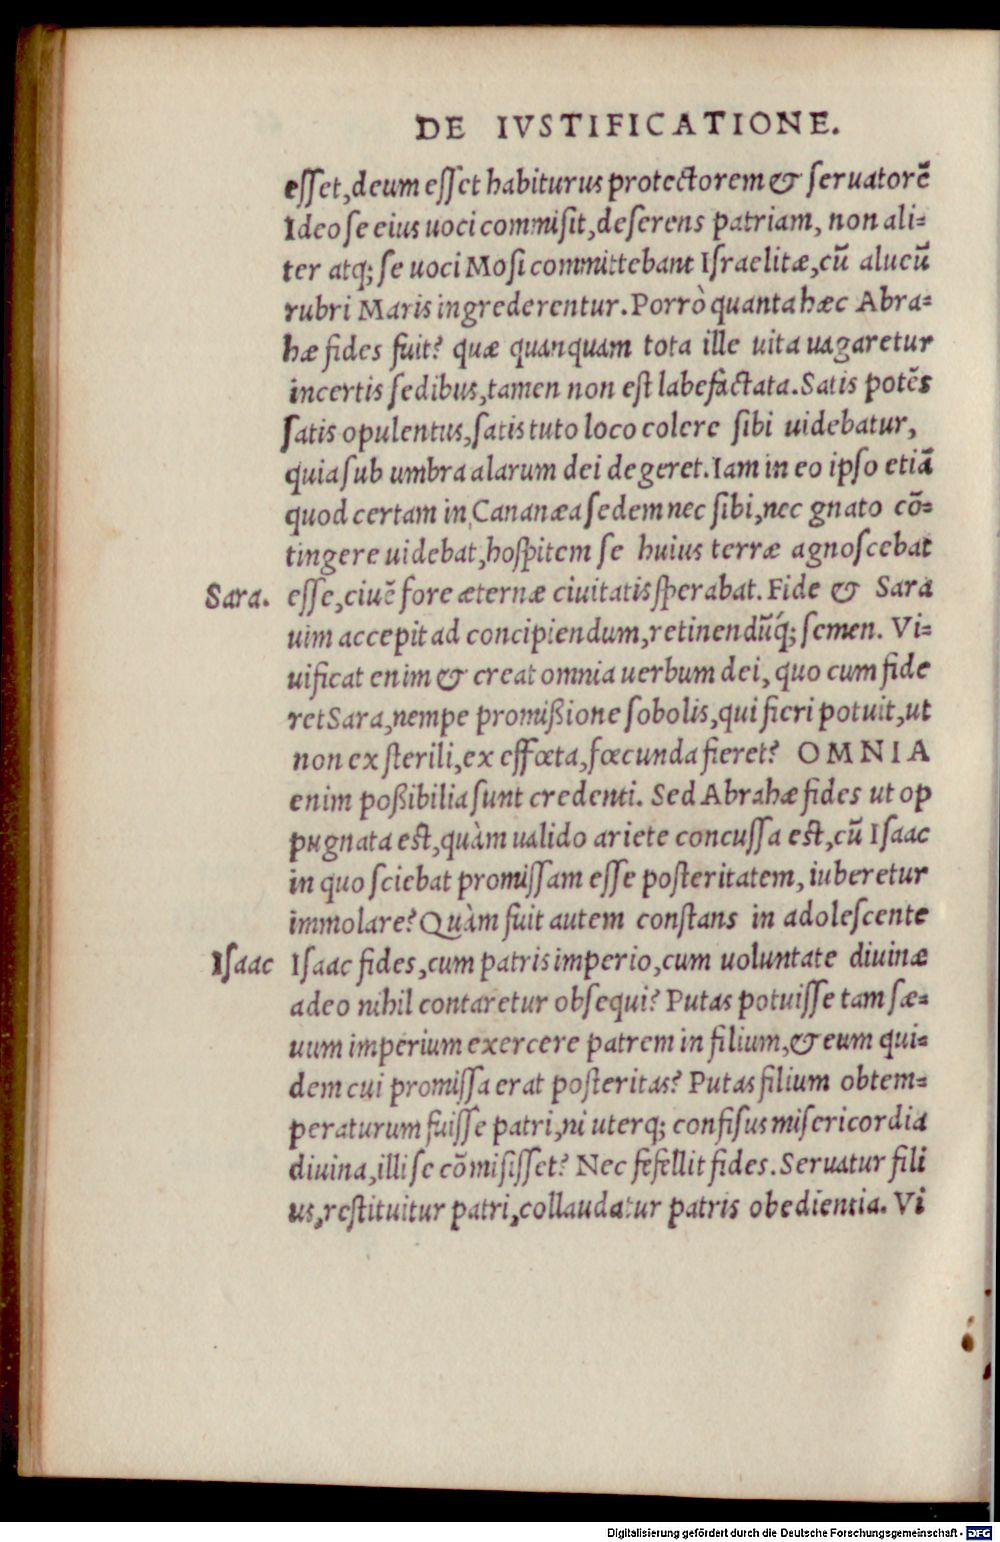 DE IVSTIFICATIONE.
esset, deum esset habiturus protectorem & seruatorē
Ideo se eius uoci commisit, deserens patriam, non ali=
ter atq; se uoci Mosi committebant Israelitæ, cū alueū
rubri Maris ingrederentur. Porrò quanta hæc Abra=
hæ fides fuit? quæ quanquam tota ille uita uagaretur
incertis sedibus, tamen non est labefactata. Satis potēs
satis opulentus, satis tuto loco colere sibi uidebatur,
quia sub umbra alarum dei degeret. Iam in eo ipso etiā
quod certam in Cananæa sedem nec sibi, nec gnato cō=
tingere uidebat, hospitem se huius terræ agnoscebat
Sara. esse, ciuē fore æternæ ciuitatis sperabat. Fide & Sara
uim accepit ad concipiendum, retinendūq́; semen. Vi=
uificat enim & creat omnia uerbum dei, quo cum fide
ret Sara, nempe promißione sobolis, qui fieri potuit, ut
non ex sterili, ex effœta, fœcunda fieret? OMNIA
enim poßibilia sunt credenti. Sed Abrahæ fides ut op
pugnata est, quàm ualido ariete concussa est, cū Isaac
in quo sciebat promissam esse posteritatem, iuberetur
immolare? Quàm fuit autem constans in adolescente
Isaac Isaac fides, cum patris imperio, cum uoluntate diuinæ
adeo nihil contaretur obsequi? Putas potuisse tam sæ=
uum imperium exercere patrem in filium, & eum qui=
dem cui promissa erat posteritas? Putas filium obtem=
peraturum fuisse patri, ni uterq; confisus misericordia
diuina, illi se cōmisisset? Nec fefellit fides. Seruatur fili
us, restituitur patri, collaudatur patris obedientia. Vi
Digitalisierung gefördert durch die Deutsche Forschungsgemeinschaft - DFG